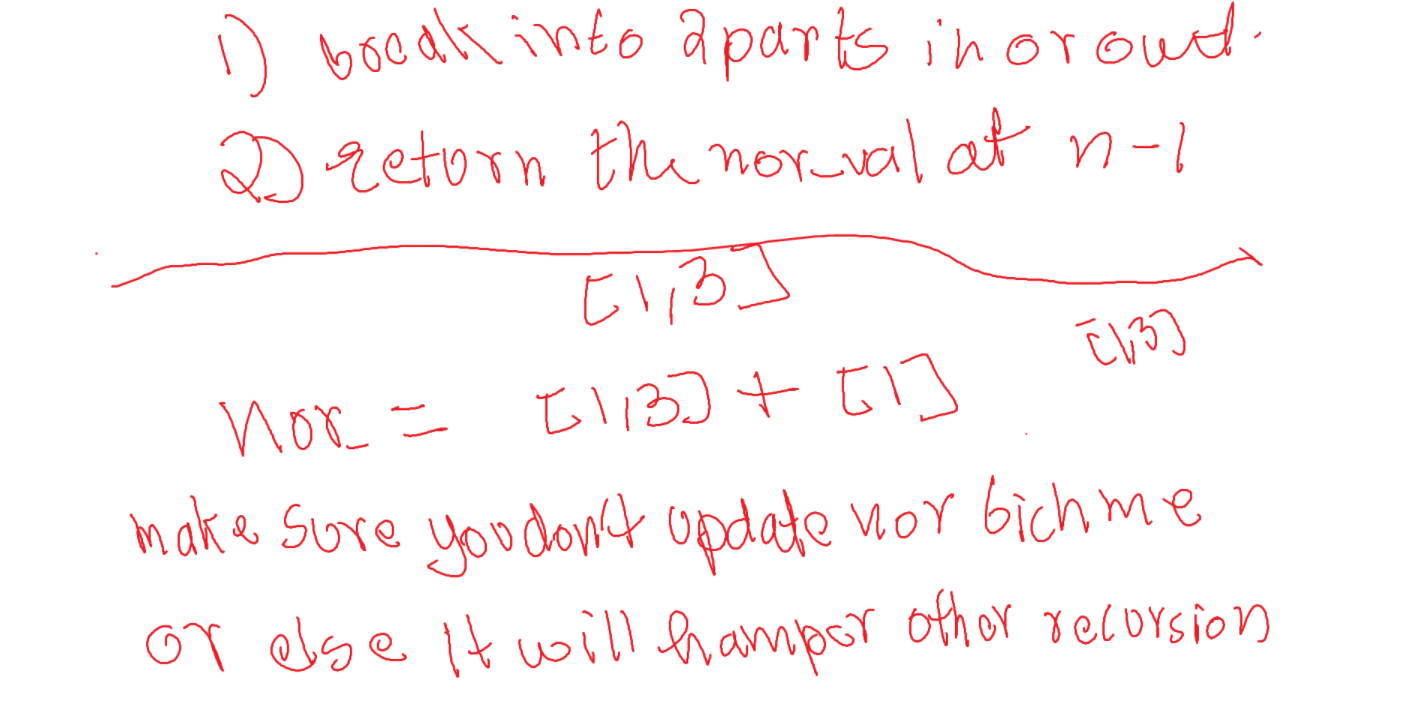 1) break into 2 parts in or out.
2) return the nor_val at n-1
[1,3]
[1,3]
nor = [1,3] + [1]
make sure you don't update nor bich me
or else it will hamper other recursion